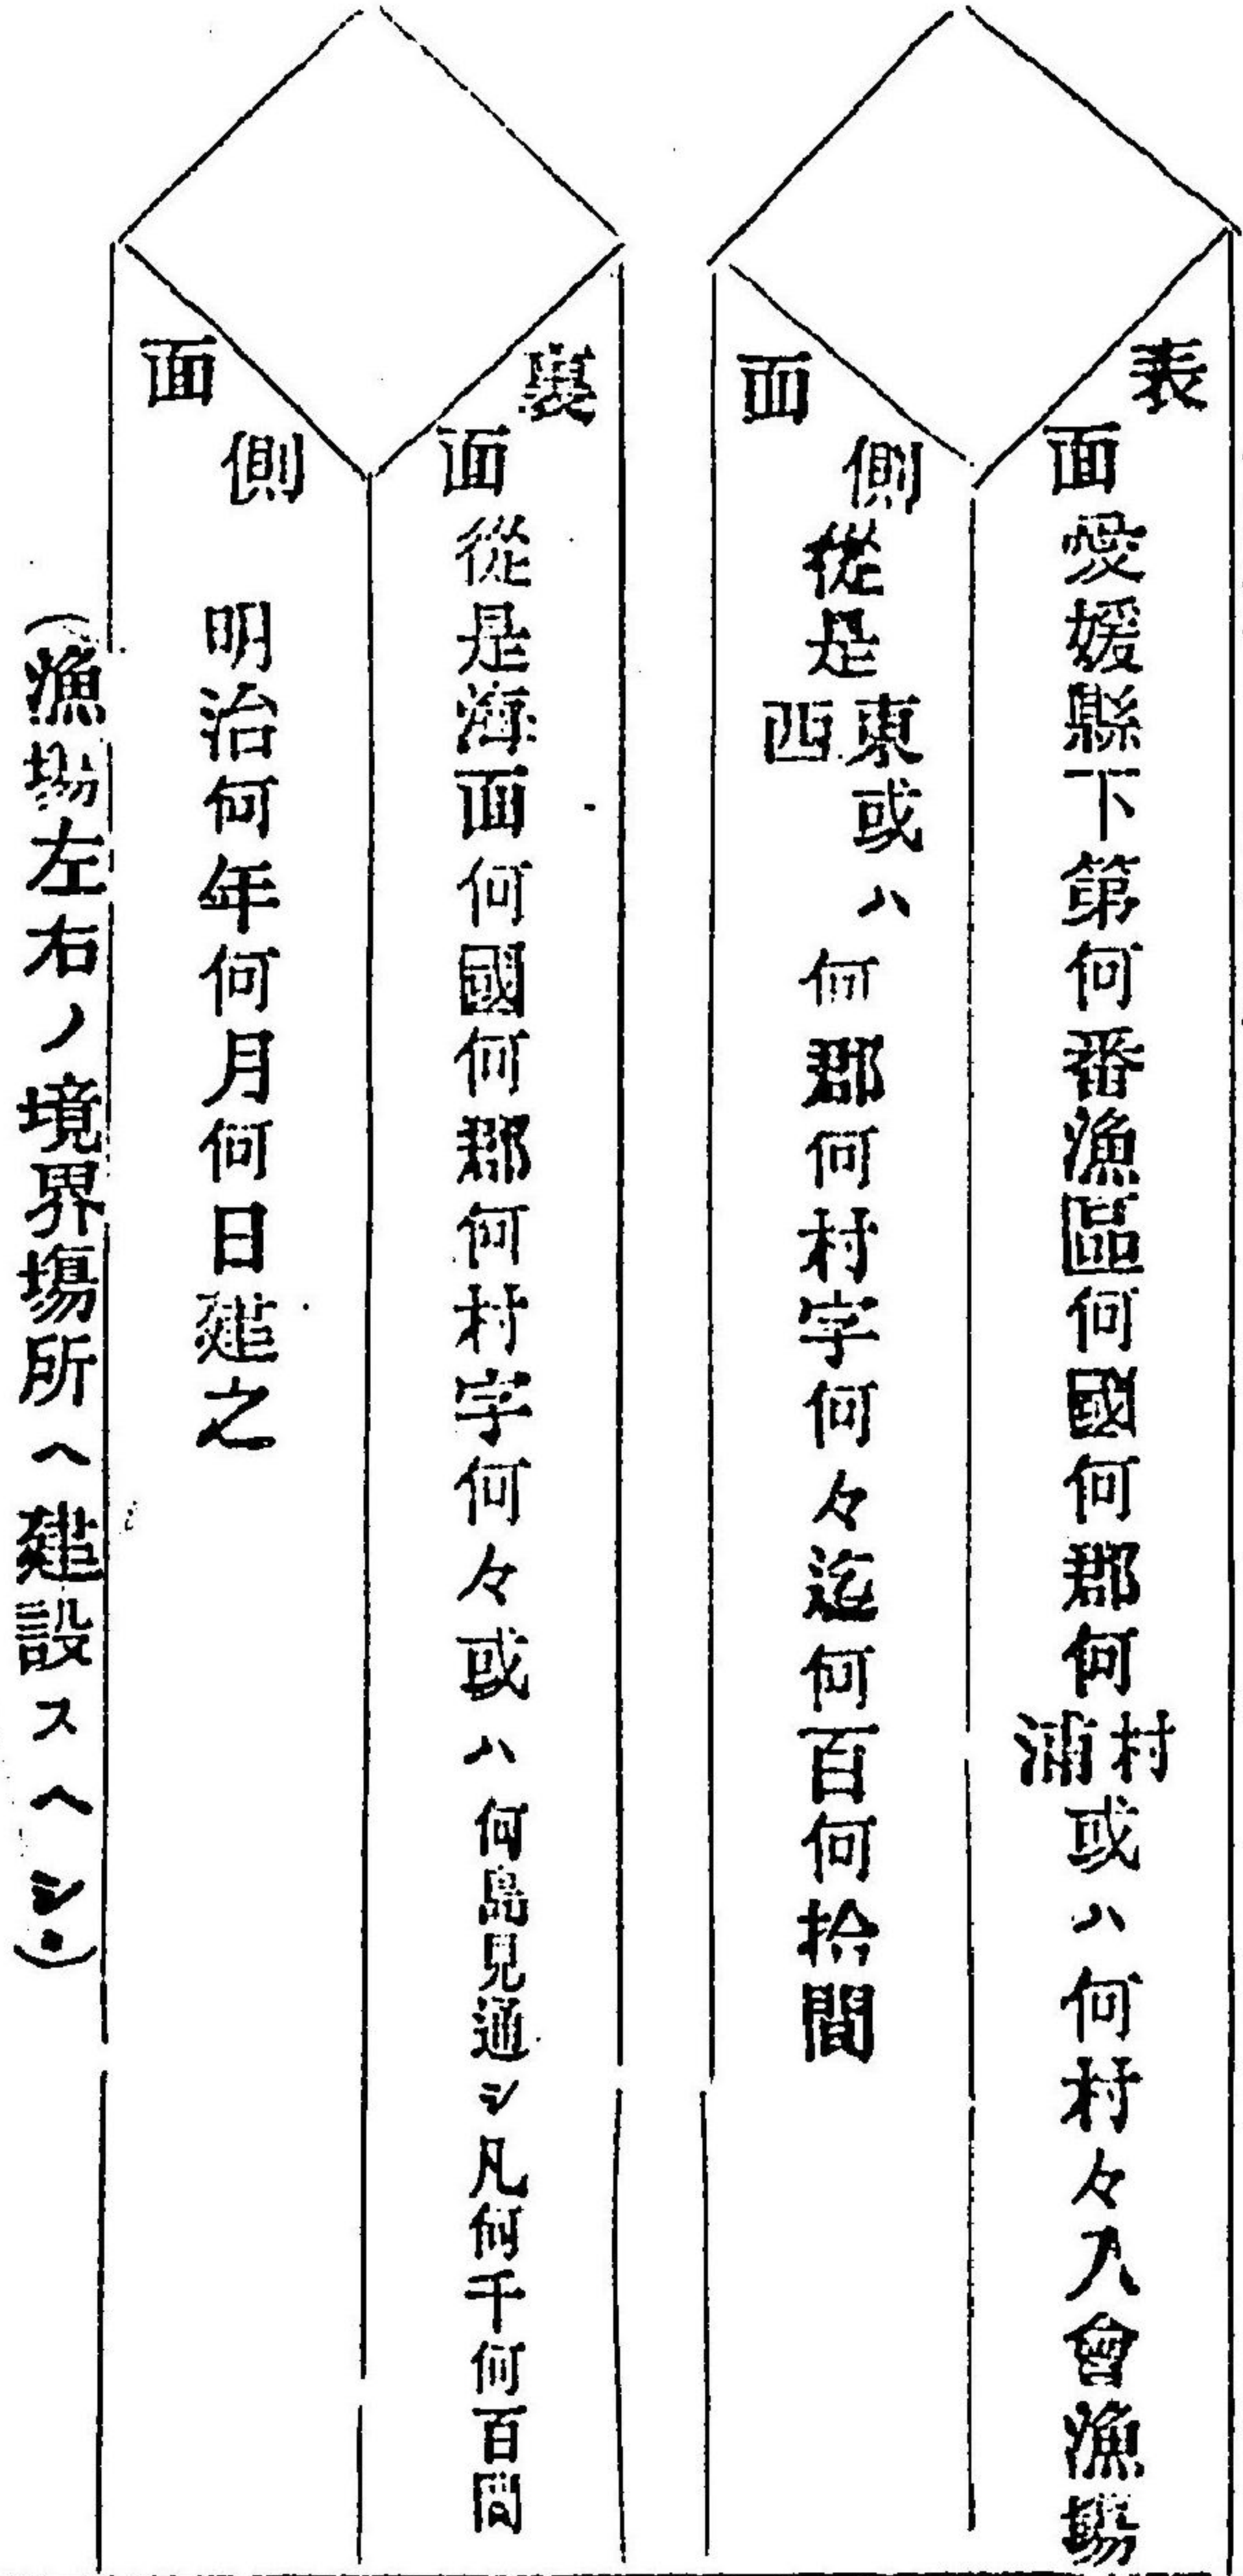 表面
愛媛縣下第何番漁區何國何郡何村浦或ハ何村々入會漁塲
側面
從是東西或ハ何郡何村字何々迄何百何拾間
裏面
從是海面何國何郡何村字何々或ハ何島見通シ凡何千何百間
側面
明治何年何月何日建之
(漁塲左右ノ境界塲所ヘ建設スヘシ)